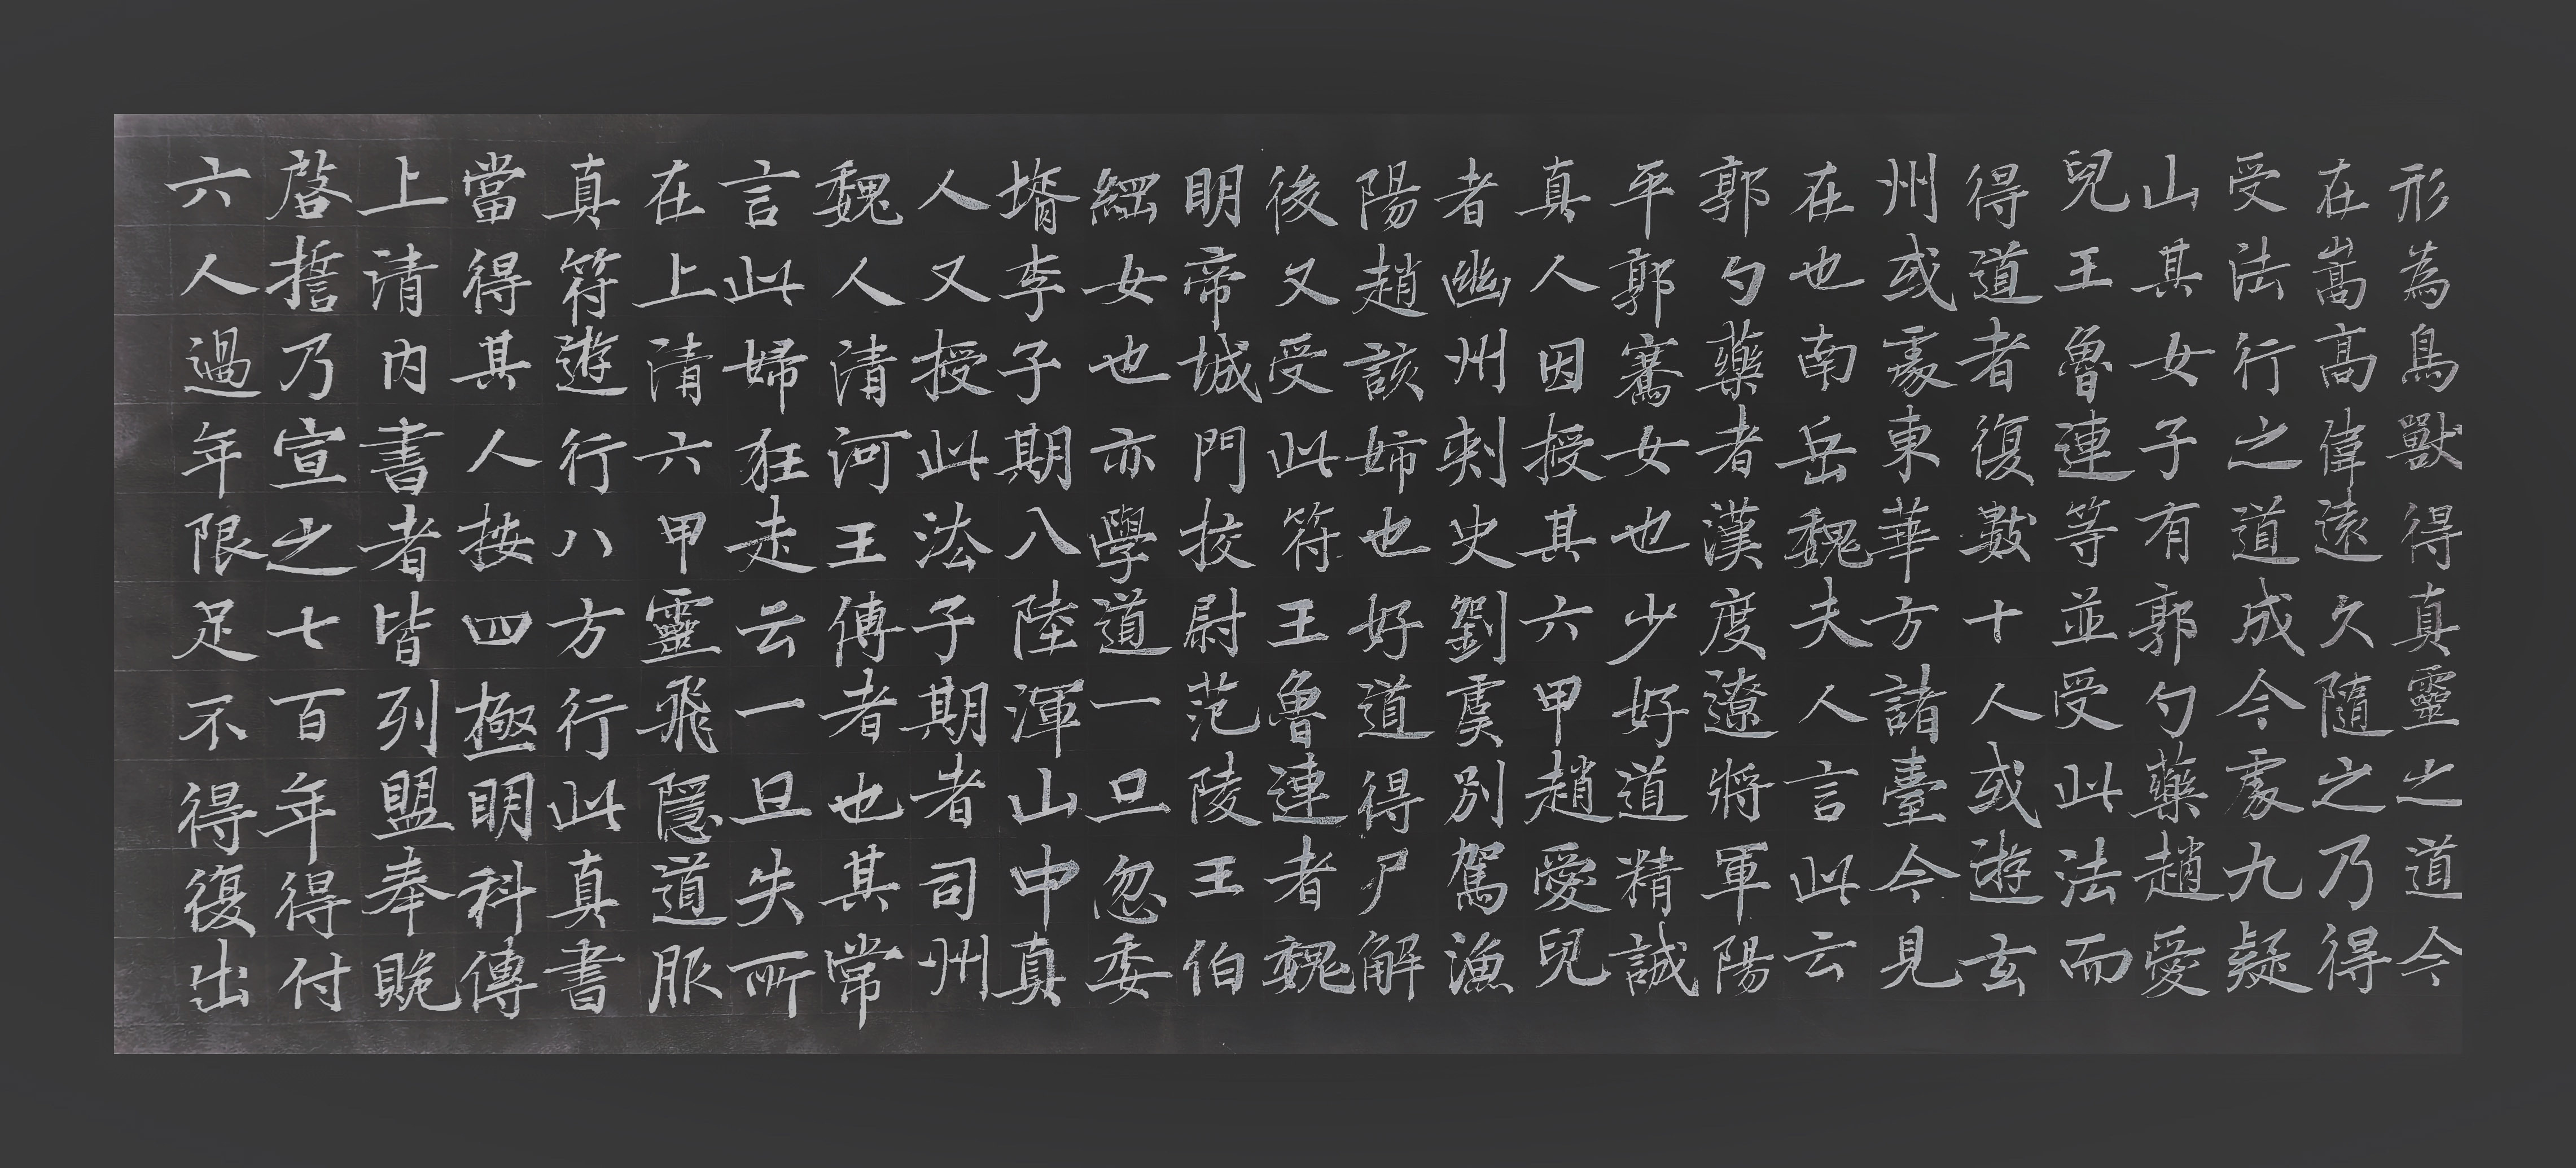 形為鳥獸得真靈之道今
在嵩高偉遠久隨之乃得
受法行之道成今處九疑
山其女子有郭勺藥趙愛
兒王魯連等並受此法而
得道者復數十人或遊玄
州或處東華方諸臺今見
在也南岳魏夫人言此云
郭勺藥者漢度遼將軍陽
平郭騫女也少好道精誠
真人因授其六甲趙愛兒
者幽州刺史劉虞別駕漁
陽趙該姊也好道得尸解
後又受此符王魯連者魏
明帝城門挍尉范陵王伯
綱女也亦學道一旦忽委
壻李子期入陸渾山中真
人又授此法子期者司州
魏人清河王傅者也其常
言此婦狂走云一旦失所
在上清六甲靈飛隱道服
真符遊行八方行此真書
當得其人按四極明科傳
上清內書者皆列盟奉贶
啓誓乃宣之七百年得付
六人過年限足不得復出